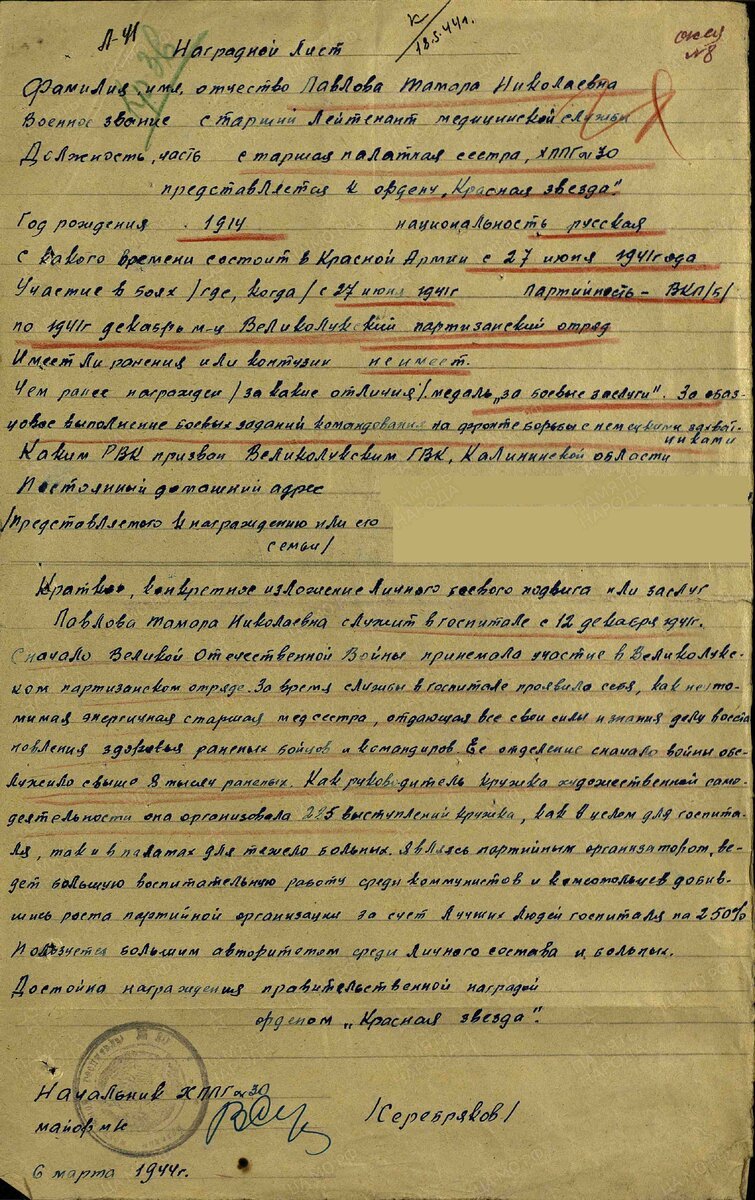 Л-41
К/18.5.44г.
Наградной Лист
№8
Фамилия имя, отчество Павлова Тамара Николаевна
Военное звание старший Лейтенант медицинской службы
Должность, часть старшая палатная сестра, ХППГ №30
представляется к ордену „Красная звезда".
Год рождения 1914 национальность русская
С какого времени состоит в Красной Армии с 27 июня 1941года
Участие в боях /где, когда/ с 27 июня 1941г Партийность - ВКП/б/
по 1941г декабрь м-ц Великолукский партизанский отряд
Имеет ли ранения или контузии не имеет.
Чем ранее награжден /за какие отличия/ медаль „за боевые заслуги". За образ-
цовое выполнение боевых заданий командования на фронте борьбы с немецкими захват-
чиками
Каким РВК призван Великолукским ГВК, Калининской области
Постоянный домашний адрес
/Представляемого к награждению или его
семьи/
Краткое, конкретное изложение личного боевого подвига или заслуг
Павлова Тамара Николаевна служит в госпитале с 12 декабря 1941г.
Сначало Великой Отечественной Войны принемала участие в Великолукс-
ком партизанском отряде. За время службы в госпитале проявила себя, как неуто-
мимая энергичная старшая медсестра, отдающая все свои силы и знания делу восста
новления здоровья раненых бойцов и командиров. Ее отделение сначало войны обс-
лужило свыше 8 тысяч раненых. Как руководитель кружка художественной само-
деятельности она организовала 225 выступлений кружка, как в целом для госпита-
ля, так и в палатах для тяжело больных. Являясь партийным организатором, ве-
дет большую воспитательную работу среди коммунистов и комсомольцев добив-
шись роста партийной организации за счет лучших людей госпиталя на 250%
Пользуется большим авторитетом среди личного состава и больных.
Достойна награждения правительственной наградой
орденом „Красная звезда".
Начальник ХППГ №30
майор м/с /Серебряков/
6 марта 1944г.